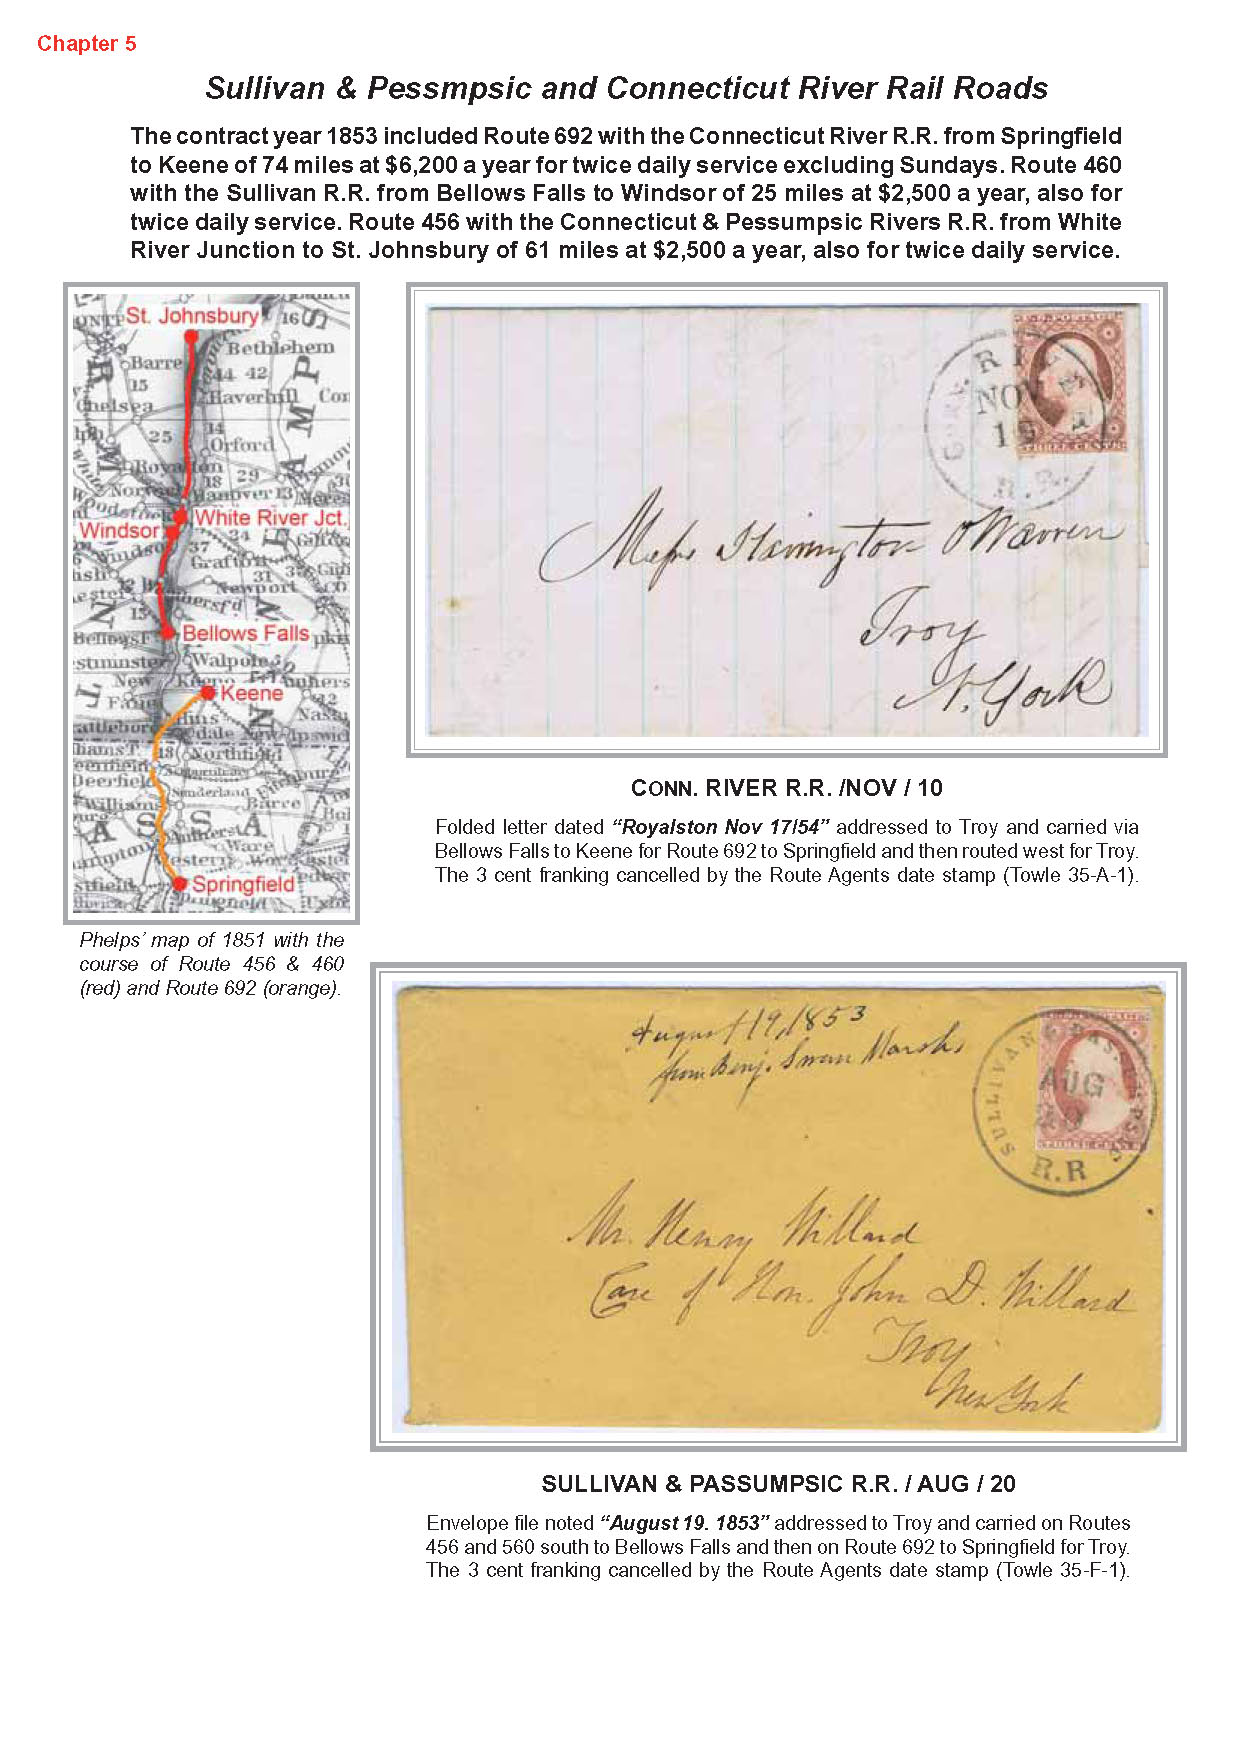 Chapter 5
Sullivan & Pessmpsic and Connecticut River Rail Roads
The contract year 1853 included Route 692 with the Connecticut River R.R. from Springfield
to Keene of 74 miles at $6,200 a year for twice daily service excluding Sundays. Route 460
with the Sullivan R.R. from Bellows Falls to Windsor of 25 miles at $2,500 a year, also for
twice daily service. Route 456 with the Connecticut & Pessumpsic Rivers R.R. from White
River Junction to St. Johnsbury of 61 miles at $2,500 a year, also for twice daily service.
St. Johnsbury
16
Bethlehem
Barre
15
44 42
Haverhill
Chelsea
25
14
Orford
Royalton
18 29
Hanover 13
White River Jct.
Windsor
37 24
Grafton
31
Newport
15
Bellows Falls
Walpole
Keene
Northfield
Deerfield
Sunderland
Barre
Williams
Amherst
Ware
Western
Springfield
Phelps’ map of 1851 with the
course of Route 456 & 460
(red) and Route 692 (orange).
NOV
R.R.
THREE CENTS
Messrs Harrington & Warren
Troy
N. York
CONN. RIVER R.R. /NOV / 10
Folded letter dated “Royalston Nov 17/54” addressed to Troy and carried via
Bellows Falls to Keene for Route 692 to Springfield and then routed west for Troy.
The 3 cent franking cancelled by the Route Agents date stamp (Towle 35-A-1).
August 19, 1853
from Benj. Swan Marsh,
SULLIVAN &
AUG
THREE CENTS
R.R
Mr. Henry Willard
Care of Hon. John D. Willard
Troy
New York
SULLIVAN & PASSUMPSIC R.R. / AUG / 20
Envelope file noted “August 19. 1853” addressed to Troy and carried on Routes
456 and 560 south to Bellows Falls and then on Route 692 to Springfield for Troy.
The 3 cent franking cancelled by the Route Agents date stamp (Towle 35-F-1).